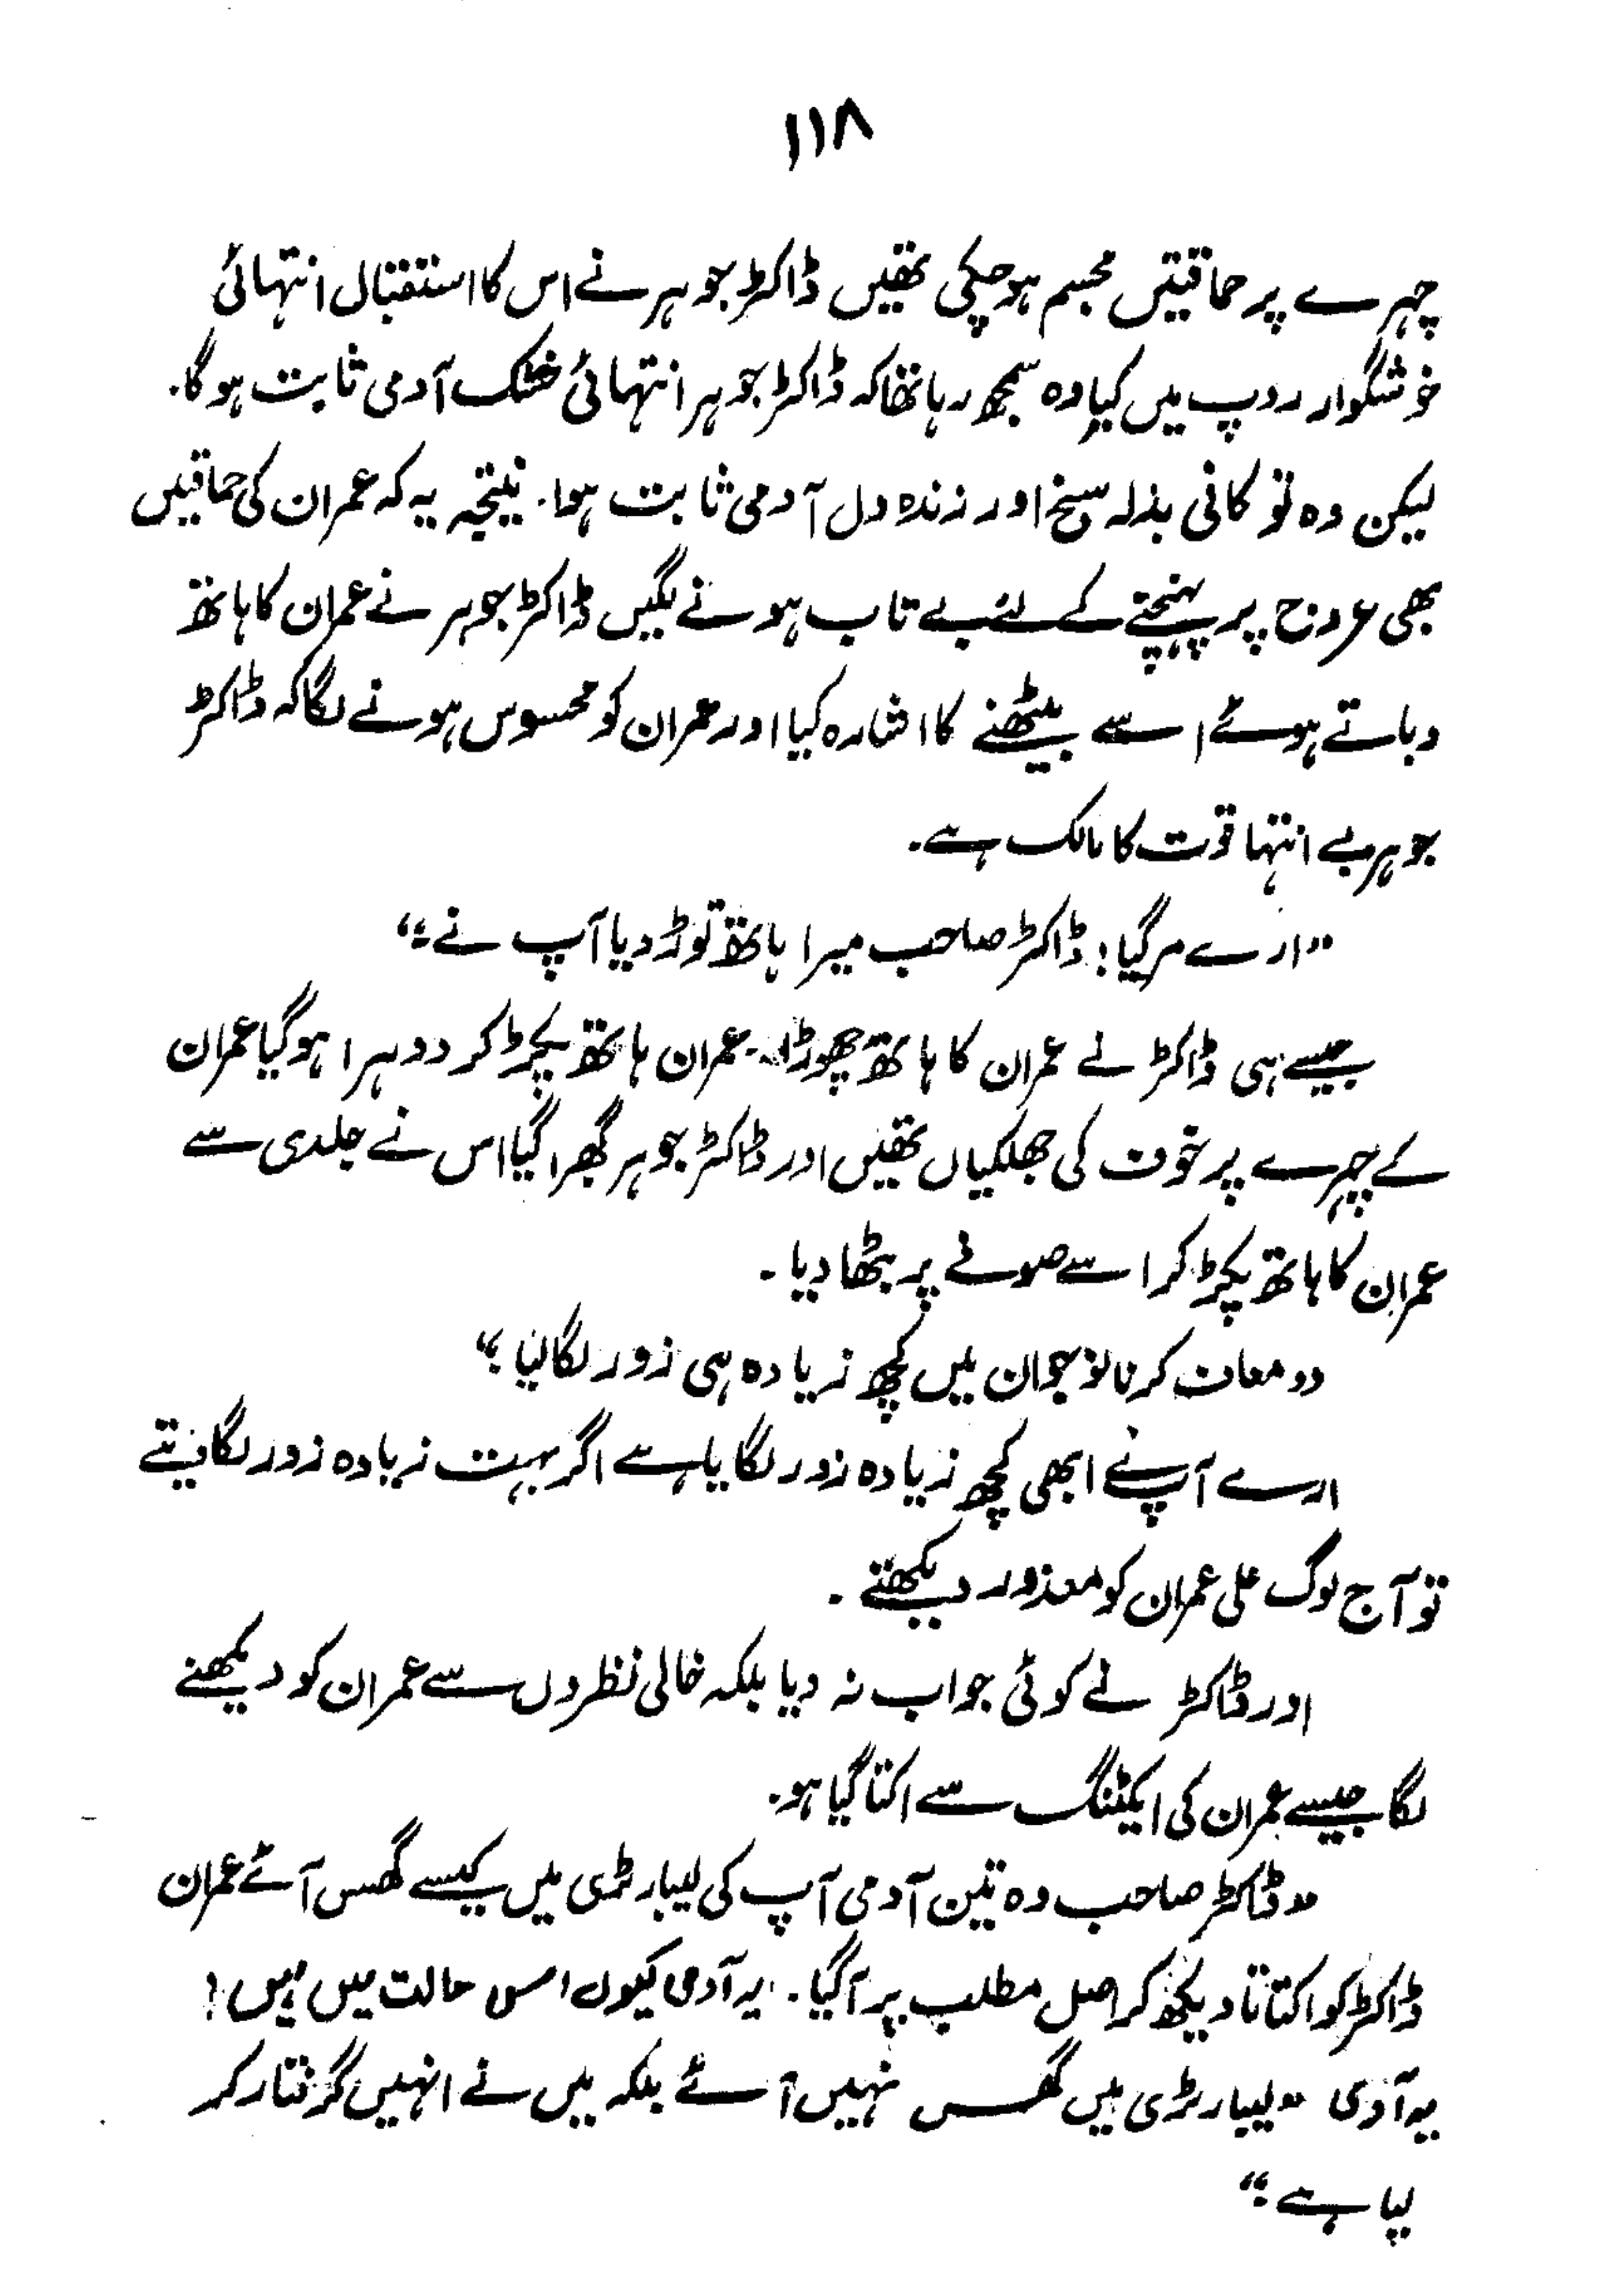 ۱۱۸
چہرے پر حماقتیں مجسم ہوچکی تھیں ڈاکٹر جوہر نے اس کا استقبال انتہائی
خوشگوار روپ میں کیا وہ سمجھ رہا تھا کہ ڈاکٹر جوہر انتہائی خشک آدمی ثابت ہوگا۔
لیکن وہ تو کافی بذلہ سنج اور زندہ دل آدمی ثابت ہوا۔ نتیجہ یہ کہ عمران کی حماقتیں
بھی عروج پر پہنچنے کے لئے بے تاب ہونے لگیں ڈاکٹر جوہر نے عمران کا ہاتھ
دباتے ہوئے اسے بیٹھنے کا اشارہ کیا اور عمران کو محسوس ہونے لگا کہ ڈاکٹر
جوہر بے انتہا قوت کا مالک ہے۔
"ارے مرگیا! ڈاکٹر صاحب میرا ہاتھ توڑ دیا آپ نے۔"
جیسے ہی ڈاکٹر نے عمران کا ہاتھ چھوڑا۔ عمران ہاتھ پکڑ کر دوہرا ہوگیا عمران
کے چہرے پر خوف کی جھلکیاں تھیں اور ڈاکٹر جوہر گھبرا گیا اس نے جلدی سے
عمران کا ہاتھ پکڑ کر اسے صوفے پر بٹھا دیا۔
"معاف کرنا نوجوان میں کچھ زیادہ ہی زور لگا لیا۔"
ارے آپ نے ابھی کچھ زیادہ زور لگایا ہے اگر بہت زیادہ زور لگا دیتے
تو آج لوگ علی عمران کو معذور دیکھتے۔
اور ڈاکٹر نے کوئی جواب نہ دیا بلکہ خالی نظروں سے عمران کو دیکھنے
لگا جیسے عمران کی ایکٹنگ سے اکتا گیا ہو۔
"ڈاکٹر صاحب وہ تین آدمی آپ کی لیبارٹری میں کیسے گھس آئے عمران
ڈاکٹر کو اکتاتا دیکھ کر اصل مطلب پر آگیا۔ یہ آدمی کیوں اس حالت میں ہیں!
یہ آدمی "لیبارٹری میں گھس نہیں آئے بلکہ میں نے انہیں گرفتار کر
لیا ہے۔"